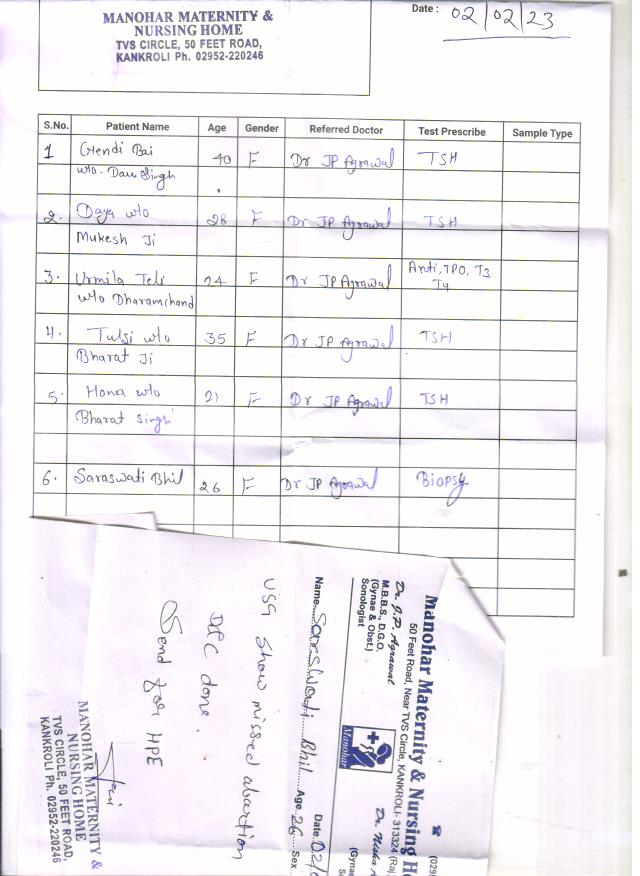 MANOHAR MATERNITY &
NURSING HOME
TVS CIRCLE, 50 FEET ROAD,
KANKROLI Ph. 02952-220246
Date : 02/02/23
S.No. Patient Name Age Gender Referred Doctor Test Prescribe Sample Type
1 Gendi Bai 40 F Dr JP Agrawal TSH
w/o - Dau Singh
2. Daya w/o 28 F Dr JP Agrawal TSH
Mukesh Ji
3. Urmila Teli 24 F Dr JP Agrawal Anti, TPO, T3
w/o Dharamchand T4
4. Tulsi w/o 35 F Dr JP Agrawal TSH
Bharat Ji
5. Hona w/o 21 F Dr JP Agrawal TSH
Bharat Singh
6. Saraswati Bhil 26 F Dr JP Agrawal Biopsy
Manohar Maternity & Nursing H
50 Feet Road, Near TVS Circle, KANKROLI- 313324 (Raj.
☎ (029
Dr. J.P. Agrawal
M.B.B.S., D.G.O.
(Gynae & Obst.)
Sonologist
Manohar
Dr. Nisha A
(Gynae
Name Saraswati Bhil Age 26 Sex
Date 02/
USG show missed abortion
D&C done.
Send for HPE
MANOHAR MATERNITY &
NURSING HOME
TVS CIRCLE, 50 FEET ROAD,
KANKROLI Ph. 02952-220246